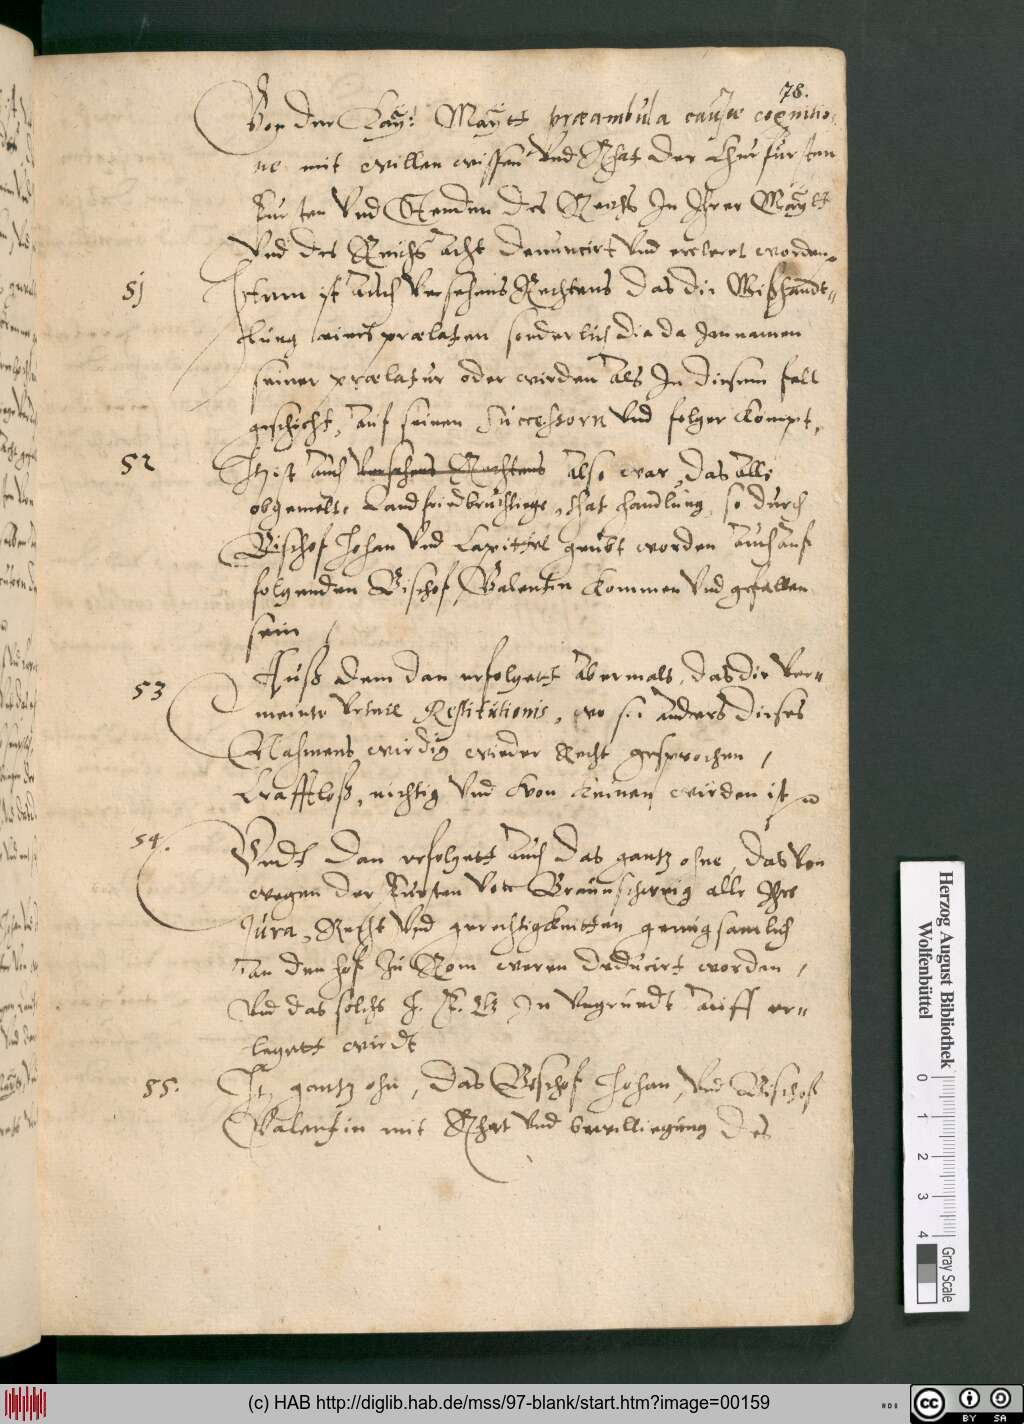 78.
Von der Kay: Maytt præambula causæ cognitio-
ne mit willen wissen Vnd Rhat der Churfursten
Fursten Vnd Stenden des Reichs In Irer Maytt
Vnd des Reichs acht denuncirt Vnd ercleret worden.
51 Ferner ist auch Versehens Rechtens das die Mißhandt-
lung eines prælaten sonderlich die da Im namen
seiner prælatur oder wirden als In diesem fall
geschicht, auf seinen Successorn Vnd folger kompt,
52 Itz ist auch Versehens Rechtens also war, das alle
obgemelte Landfriedbruchliege, that handlung, so durch
Bischof Johan Vnd Capittel geubt worden auch auf
folgenden Bischof Valentin kommen Vnd gefallen
sein,
53 Auß dem dan erfolgett abermals, das die Ver-
meinte Urteil Restitutionis, wo sie anders dieses
Nahmens wirdig wieder Recht gesprochen,
Crafftloß, nichtig Vnd Von keinen wirden ist
54. Vndt dan erfolgett auch das gantz ohne, das Von
wegen der Fursten Von Braunschweig alle Ihre
Jura, Recht Vnd gerechtigkeitten genugsamlich
an den hof zu Rom weren deducirt worden,
Vnd das solchs In Vngrundt auff er-
legett wirdt
55. It. gantz ohn, das Bischof Johan, Vnd Bischof
Valentin mit Rhat Vnd bewilliegung des
Herzog August Bibliothek
Wolfenbüttel
0 1 2 3 4
Gray Scale
(c) HAB http://diglib.hab.de/mss/97-blank/start.htm?image=00159
cc BY SA